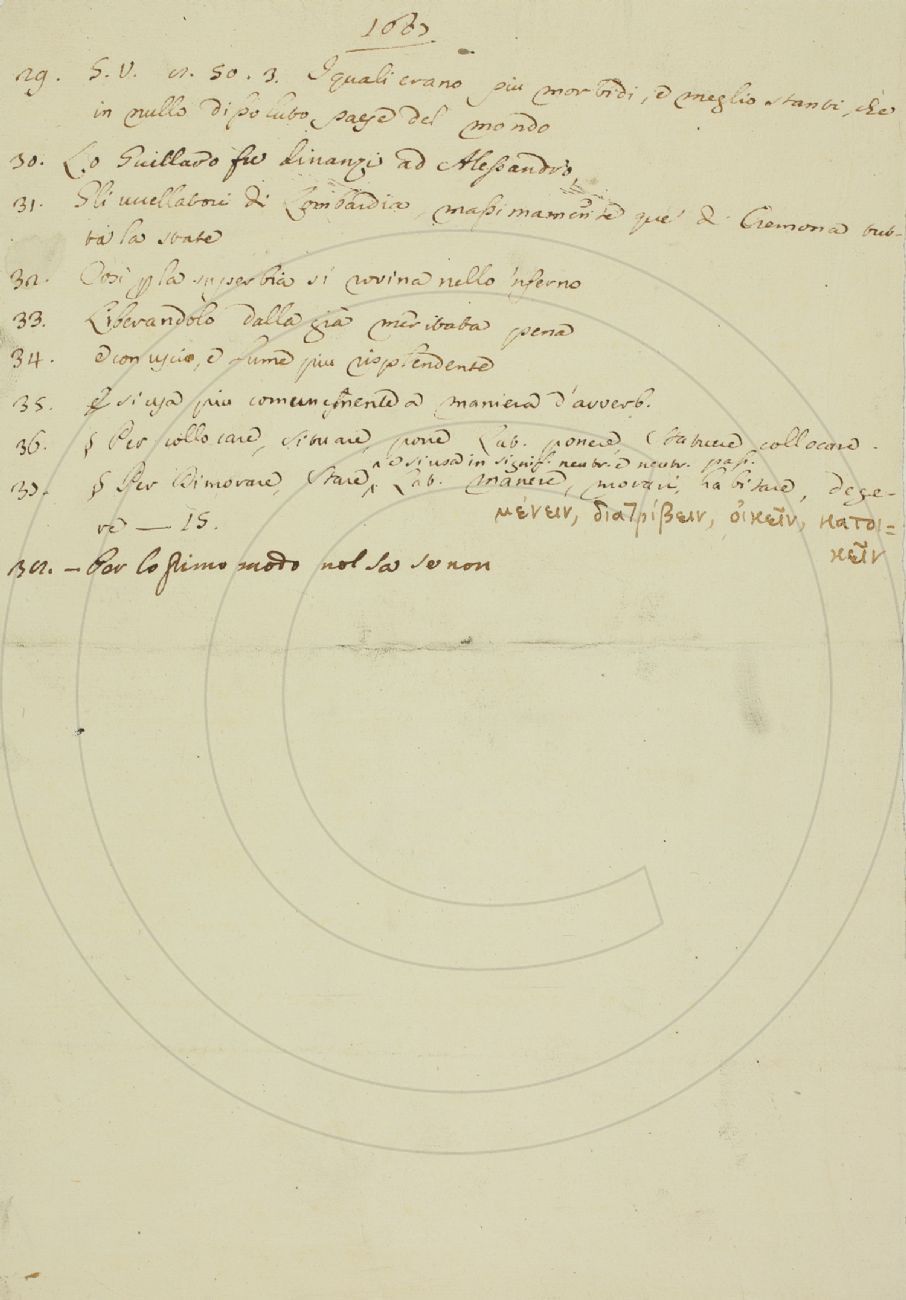 1687
29. G. V. 12. 50. 3. I quali erano più morbidi, e meglio stanti, che
in nullo dissoluto paese del mondo
30. Lo Guillardo fu dinanzi ad Alessandro,
31. Gli uccellatori di Lombardia, massimamente que' di Cremona tut-
ta la state
32. Così p la superbia si rovina nello inferno
33. Liberandolo dalla già meritata pena
34. e con uscio, e lume più risplendente
35. E si usa più comunemente a maniera d'avverb.
36. § Per collocare, situare, porre Lat. ponere, statuere collocare.
e si usa in signif. neutr. e neutr. pass.
37. § Per Dimorare, Stare, Lat. manere, morari, habitare, dege-
re — 15. μένειν, διατρίβειν, οἰκεῖν, κατοι=
κεῖν
38. — Per lo primo modo nol sa se non